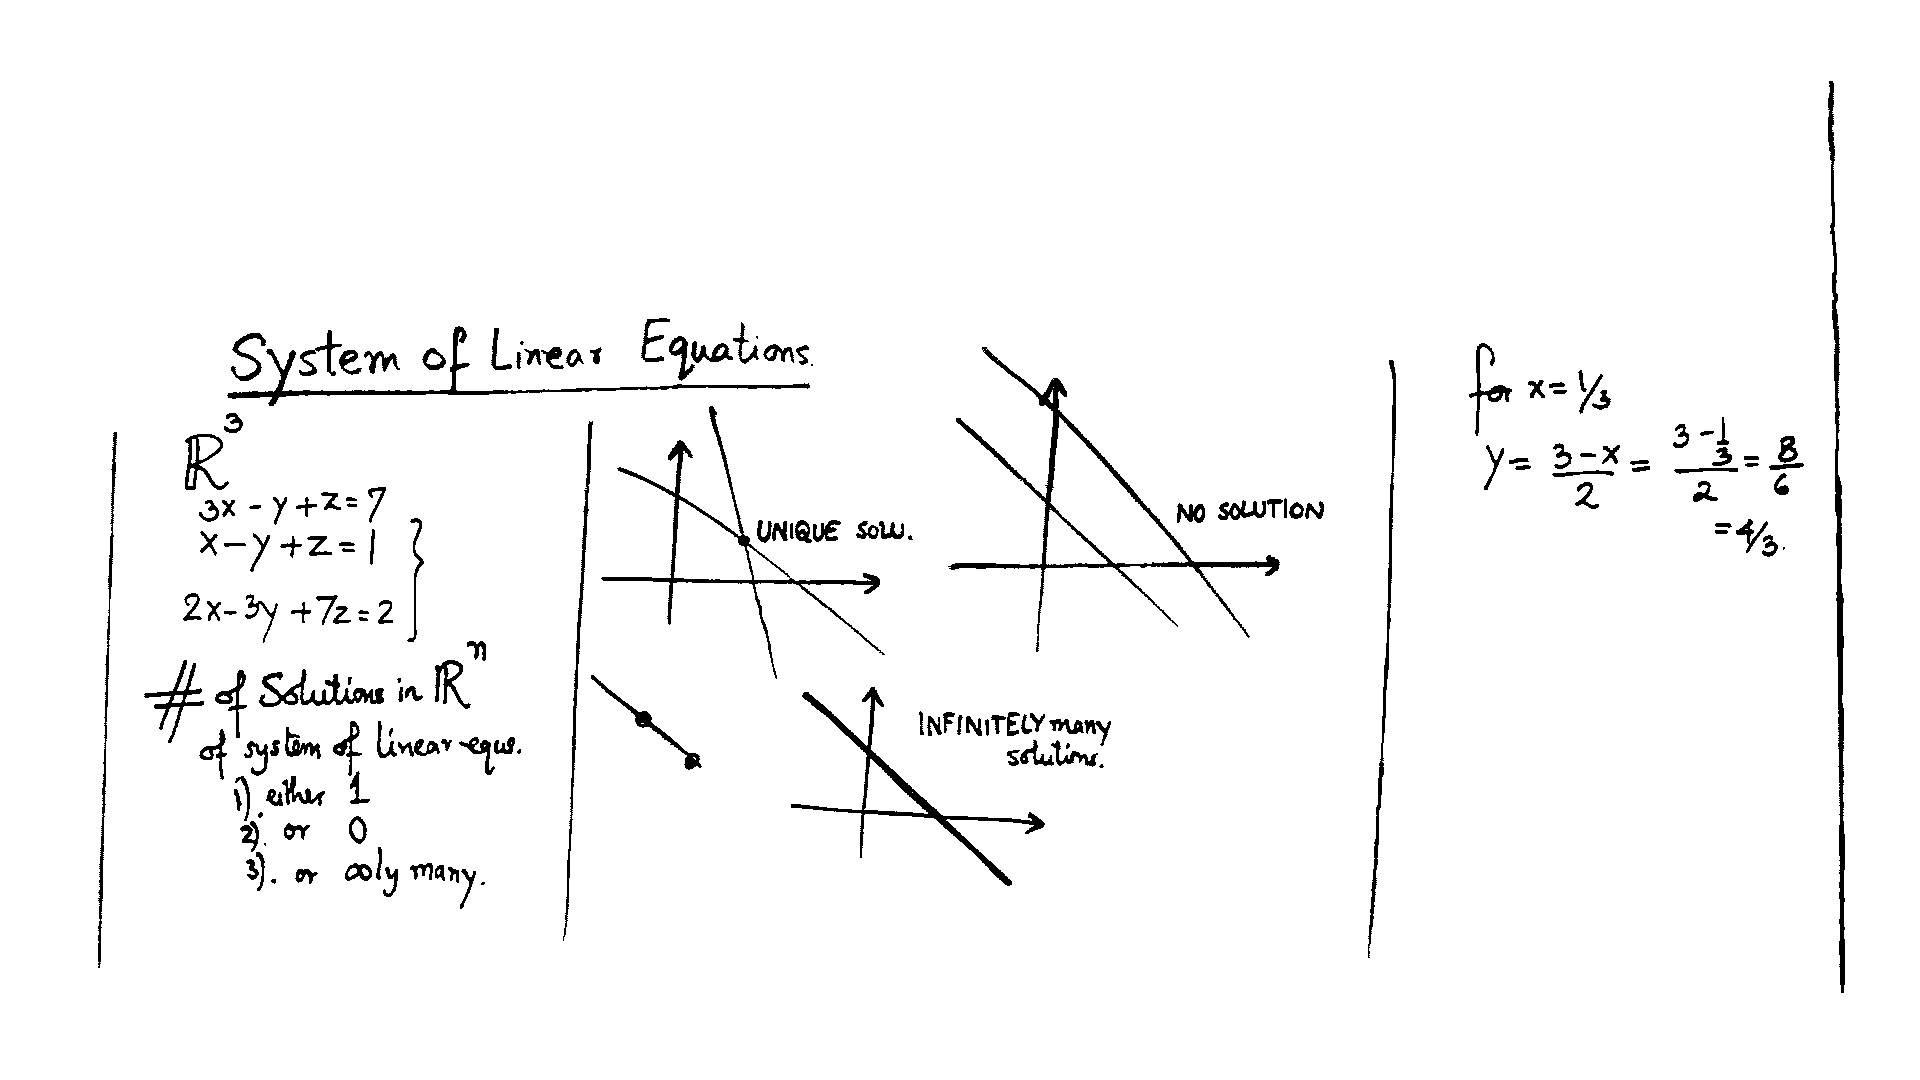 System of Linear Equations.
ℝ³
3x - y + z = 7
x - y + z = 1
2x - 3y + 7z = 2
# of Solutions in ℝⁿ
of system of linear equs.
1). either 1
2). or 0
3). or ∞ly many.
UNIQUE SOLU.
NO SOLUTION
INFINITELY many
solutions.
for x = 1/3
y = (3-x)/2 = (3 - 1/3)/2 = 8/6
= 4/3.